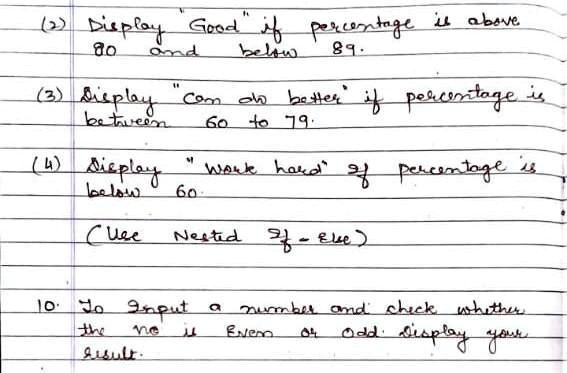 (2) Display "Good" if percentage is above
80 and below 89.
(3) Display "Can do better" if percentage is
between 60 to 79.
(4) Display "Work hard" If percentage is
below 60.
(Use Nested If - Else)
10. To Input a number and check whether
the no is Even or odd. Display your
result.